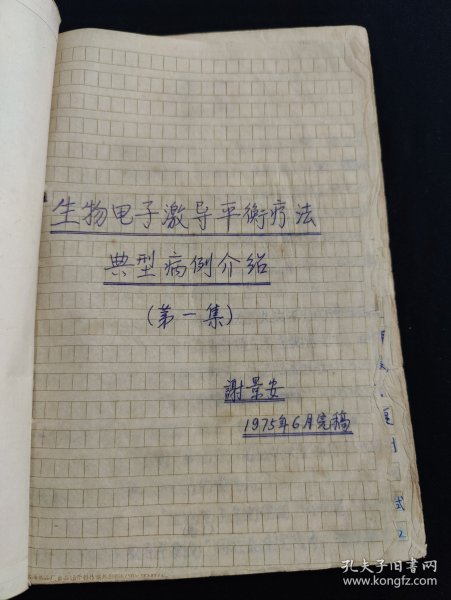 生物电子激导平衡疗法
典型病例介绍
(第一集)
謝景安
1975年6月完稿
式2
孔夫子旧书网
www.kongfz.com